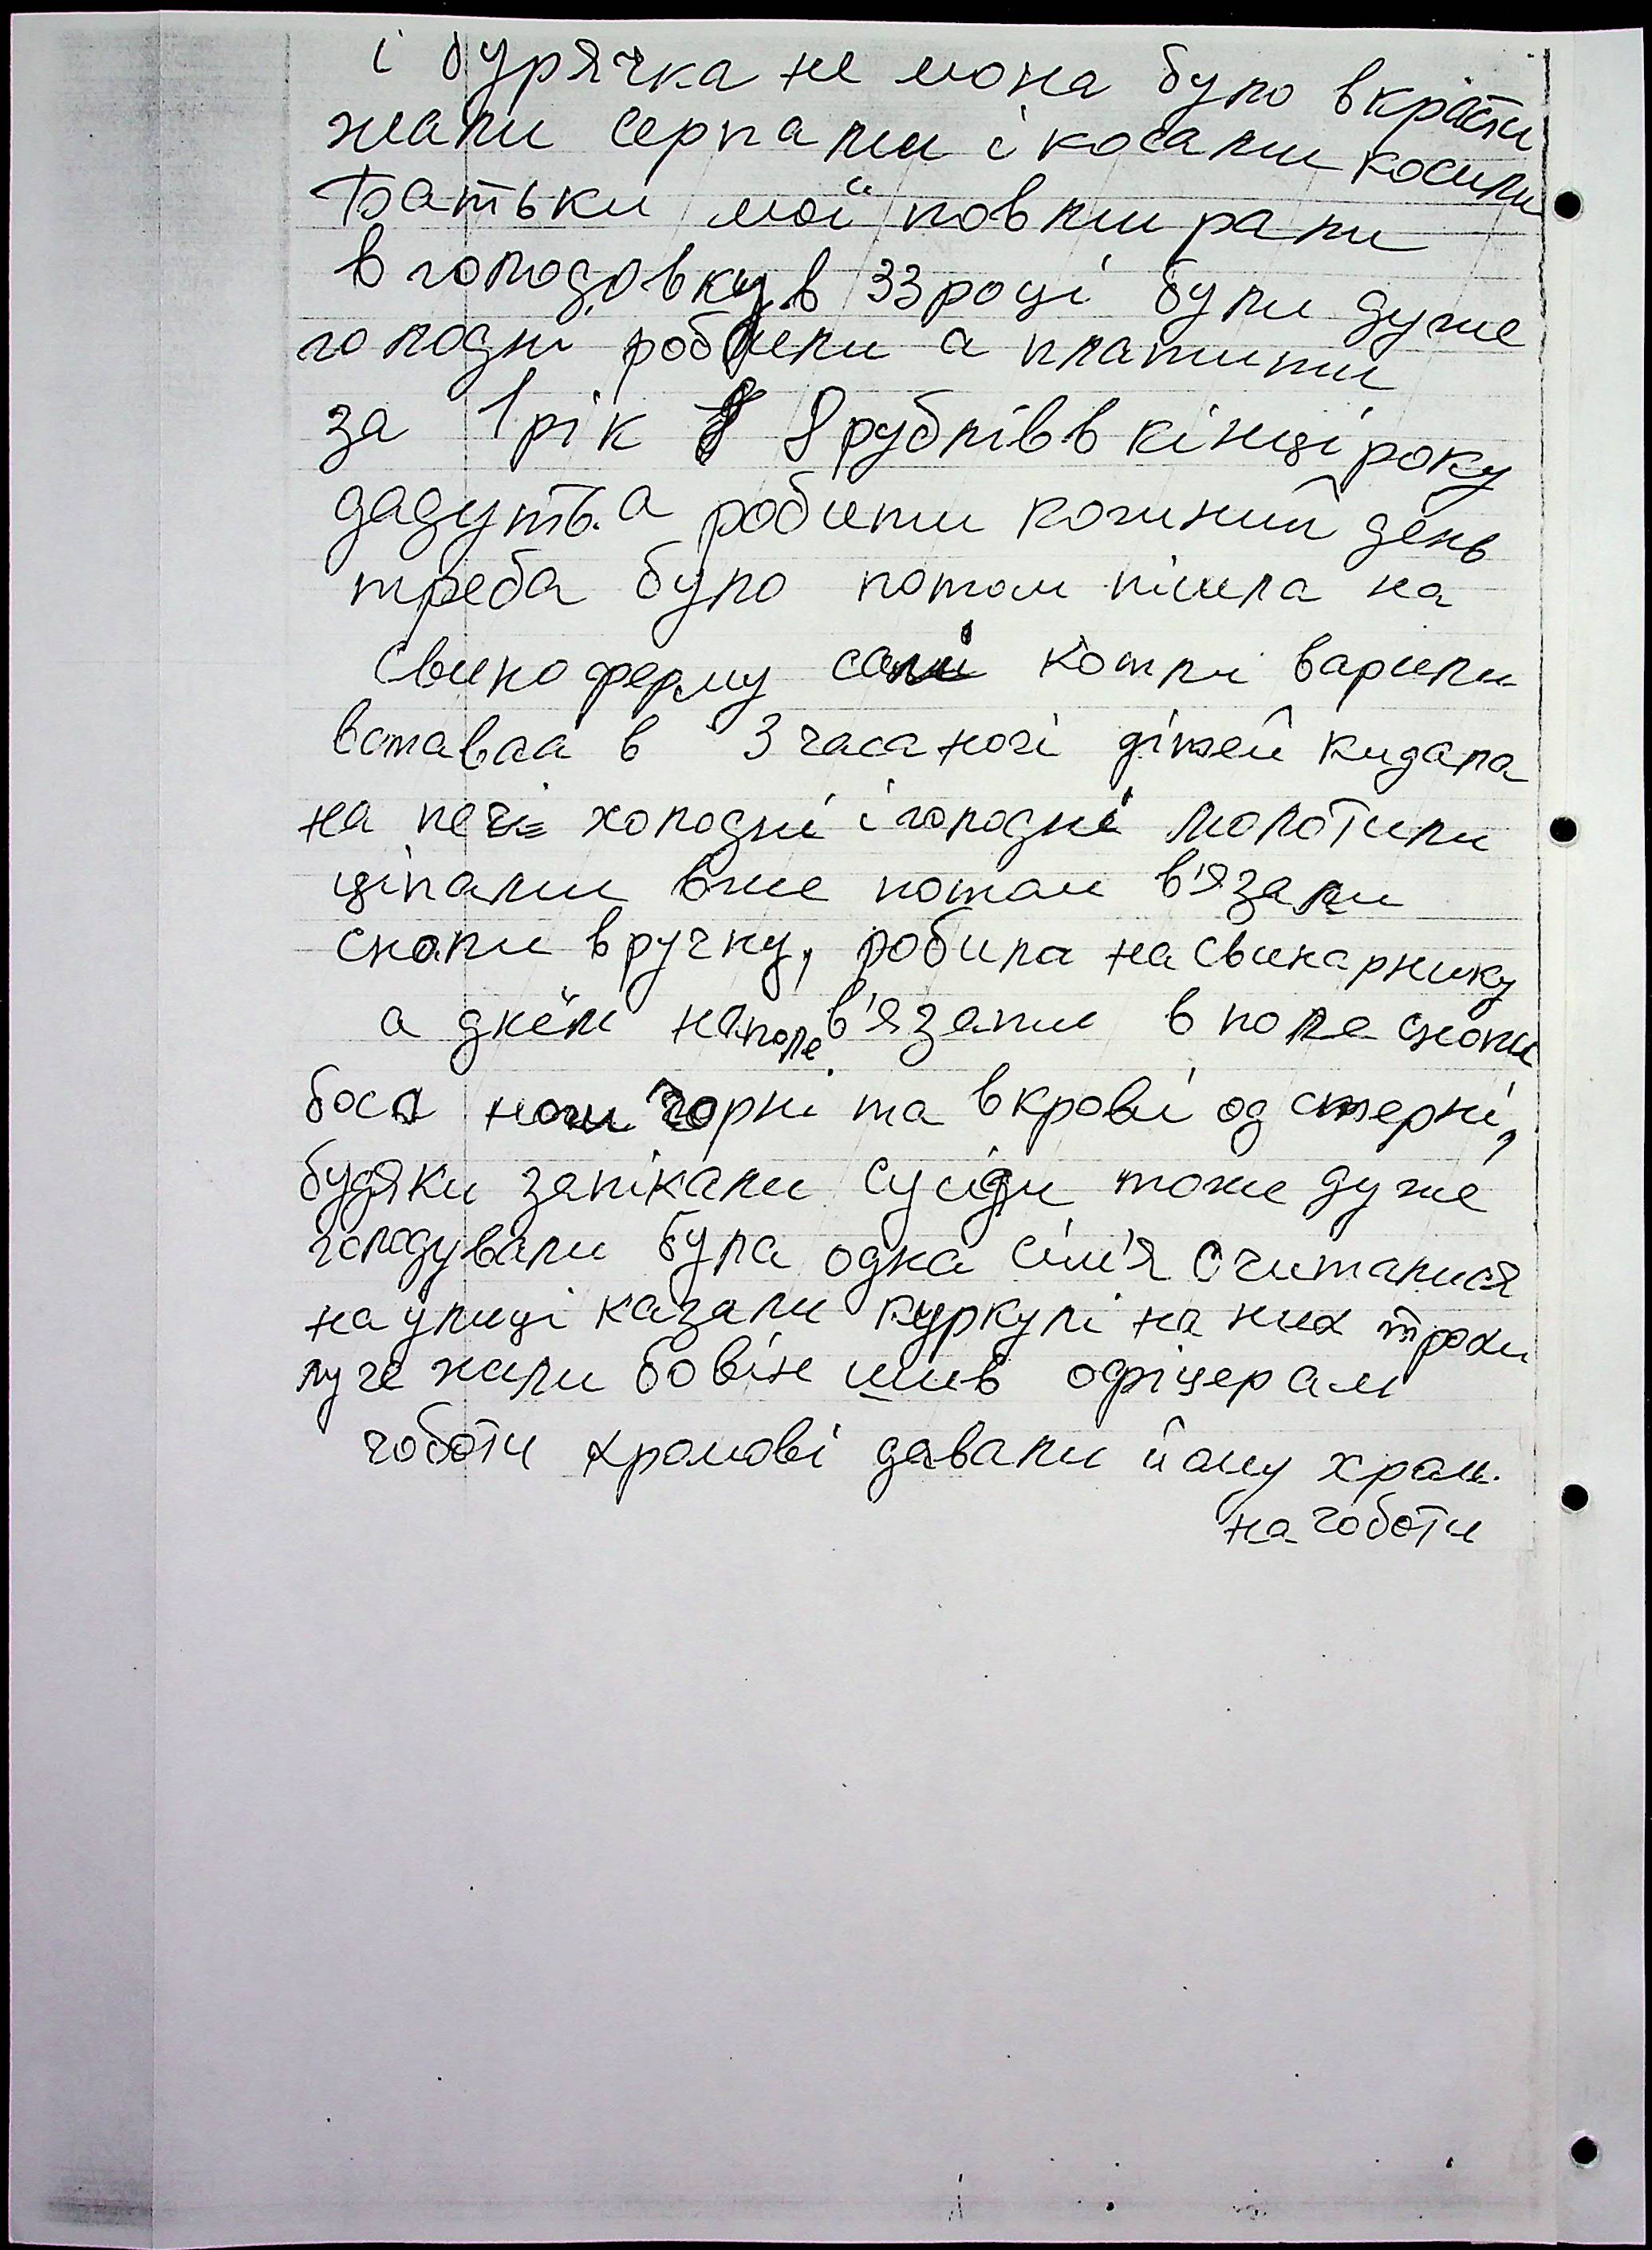 і бурячка не мона було вкрасти
жали серпами і косами косили
Батьки мої повмирали
в голодовку в 33 році були дуже
голодні робили а платили
за 1 рік 8 рублів в кінці року
дадуть. а робити кожний день
треба було потом пішла на
свиноферму самі котли варили
вставала в 3 часа ночі дітей кидала
на печі холодні і голодні молотили
ціпами вже потом в'язали
снопи вручну, робила на свинарнику
а днём на поле в'язати в поле снопи
боса ноги чорні та в крові од стерні,
будяки запікали сусіди тоже дуже
голодували була одна сім'я считалися
на улиці казали куркулі на них трохи
луче жили бо він шив офіцерам
чоботи хромові давали йому храм.
на чоботи